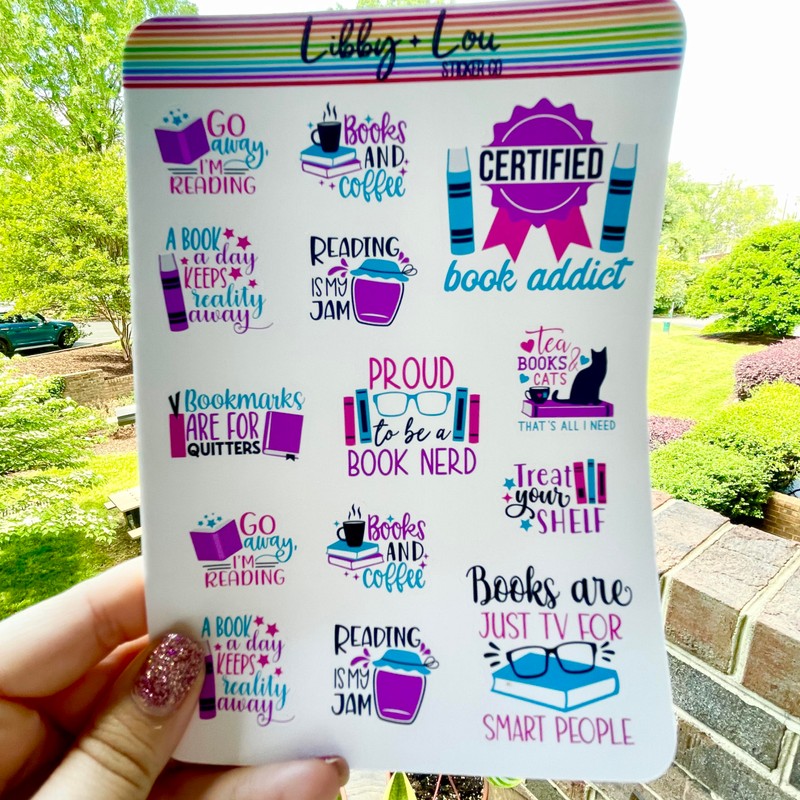 Libby + Lou
STICKER CO
GO
away,
I'M
READING
Books
AND
coffee
CERTIFIED
book addict
A BOOK
a day
KEEPS
reality
away
READING
IS MY
JAM
Bookmarks
ARE FOR
QUITTERS
PROUD
to be a
BOOK NERD
Tea
BOOKS &
CATS
THAT'S ALL I NEED
Treat
your
SHELF
GO
away,
I'M
READING
Books
AND
coffee
A BOOK
a day
KEEPS
reality
away
READING
IS MY
JAM
Books are
JUST TV FOR
SMART PEOPLE